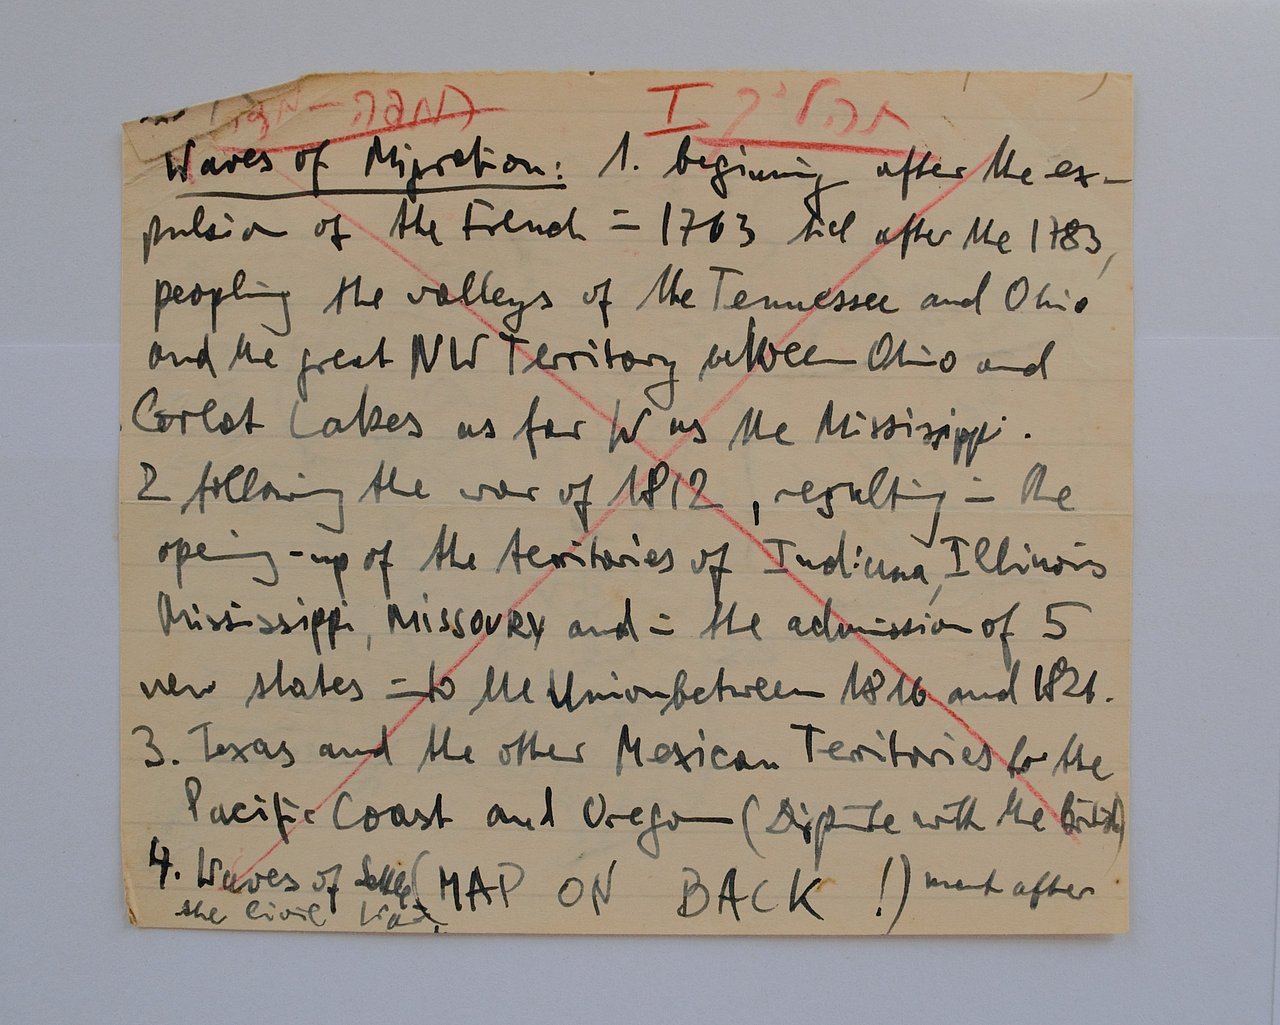 תהליך I
Waves of Migration: 1. beginning after the ex-
pulsion of the French = 1763 till after the 1783,
peopling the valleys of the Tennessee and Ohio
and the great NW Territory between Ohio and
Great Lakes as far W as the Mississippi.
2 following the war of 1812, resulting in the
opening-up of the territories of Indiana, Illinois
Mississippi, MISSOURY and in the admission of 5
new states into the Union between 1816 and 1821.
3. Texas and the other Mexican Territories to the
Pacific Coast and Oregon (Dispute with the British)
4. Waves of Settle (MAP ON BACK !) ment after
the Civil War.